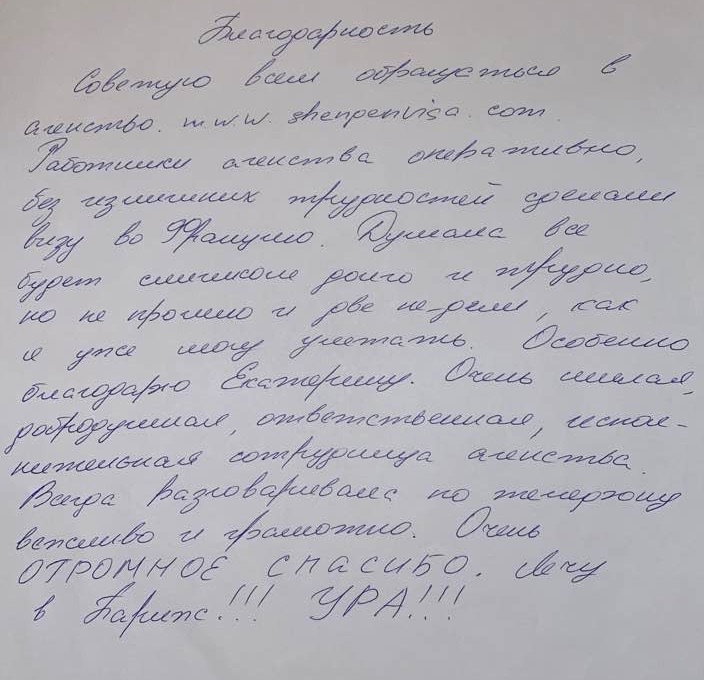 Благодарность
Советую всем обращаться в
агенство. www.shenpenvisa.com.
Работники агенства оперативно,
без излишних трудностей сделали
визу во Францию. Думала все
будет слишком долго и трудно,
но не прошло и две не-дели, как
я уже могу улетать. Особенно
благодарю Екатерину. Очень милая,
добродушная, ответственная, испол-
нительная сотрудница агенства.
Всегда разговаривала по телефону
вежливо и грамотно. Очень
ОГРОМНОЕ СПАСИБО. Лечу
в Париж!!! УРА!!!